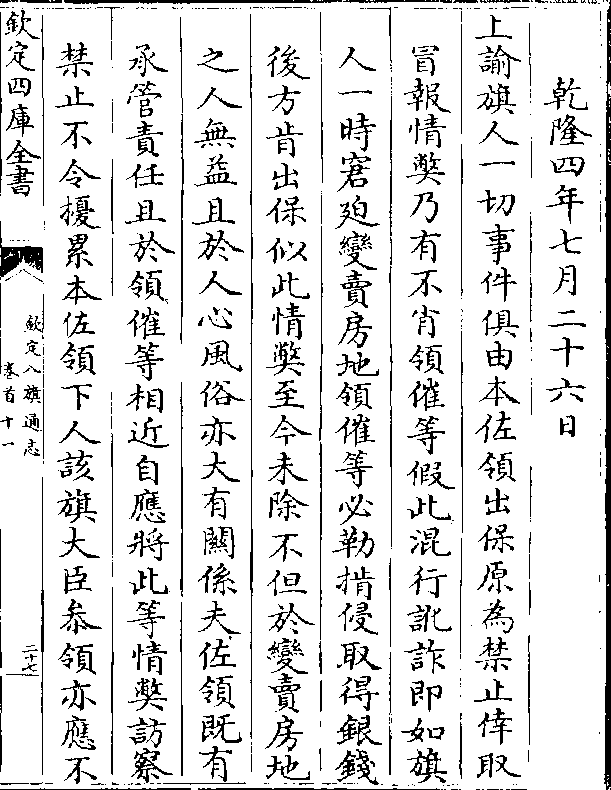 乾隆四年七月二十六日
上諭旗人一切事件俱由本佐領出保原為禁止倖取
冒報情獘乃有不肖領催等假此混行訛詐即如旗
人一時窘廹變賣房地領催等必勒掯侵取得銀錢
後方肯出保似此情獘至今未除不但於變賣房地
之人無益且於人心風俗亦大有關係夫佐領既有
承管責任且於領催等相近自應將此等情獘訪察
禁止不令擾累本佐領下人該旗大臣叅領亦應不
欽定四庫全書
欽定八旗通志
卷首十一
二十七